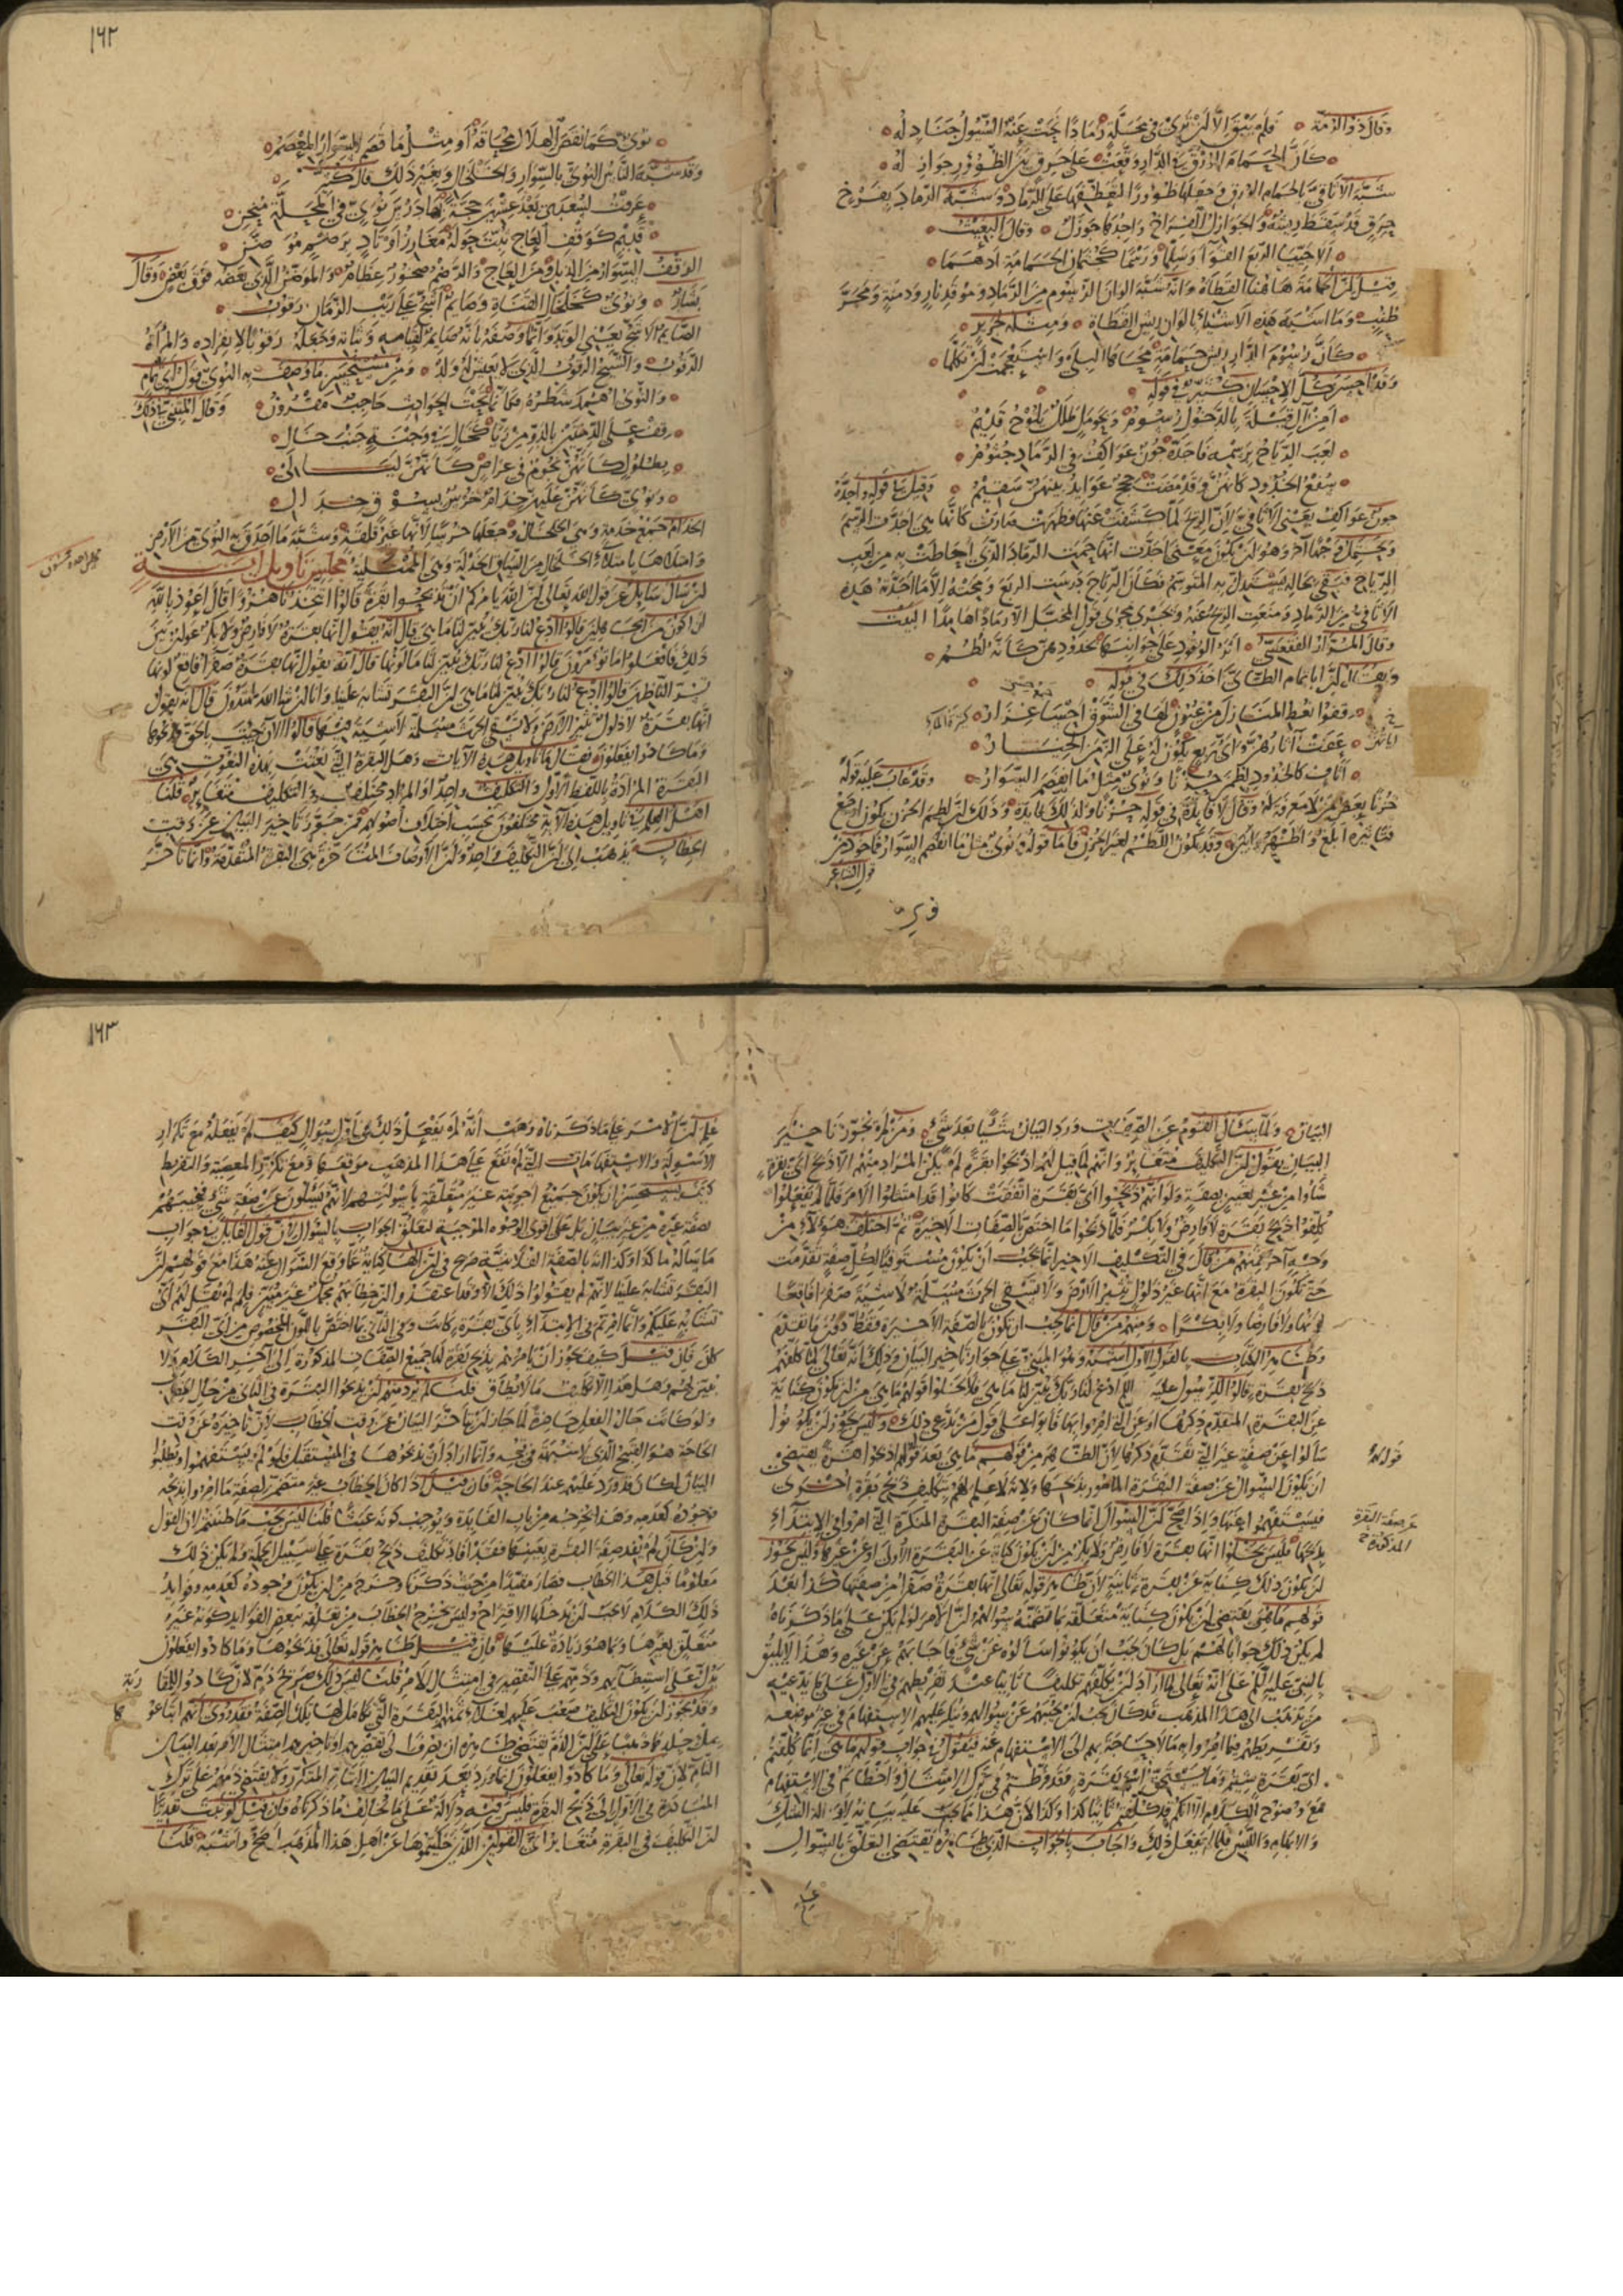 وقال ذو الرمة ه فلم يبق الا ان ترى في محله رمادا نحت عنه السيول جنادله
كأن الحمام الورق في الدار وقعت على خرق بين الظؤور جوازله
شبه الاثافي بالحمام الورق وجعلها ظؤورا لتعطفها على الرماد وشبه الرماد بفرخ
خرق قد سقط ريشه والجوازل الفراخ واحدها جوزل ه وقال البعيث
الا حييا الربع القواء وسلما وربعا كجثمان الحمامة ادهما
قيل ان الحمامة هاهنا القطاة وانه شبه الوان الرسوم من الرماد وموقد نار ودمنة ومجر
طنب وما اشبه هذه الاشياء بالوان ريش القطاة ه ومثله لجرير
كأن رسوم الدار ريش حمامة محاها البلى واستعجمت ان تكلما
وقد احسن كل الاحسان كثير في قوله
أمن ال قيلة بالدخول رسوم وبحومل طلل يلوح قديم
لعب الرياح برسمه فأجده جون عواكف في الرماد جثوم
سفع الخدود كأنهن وقد مضت حجج عوائد بينهن سقيم ه وقيل في قوله واجده
جون عواكف يعني الاثافي لان الريح لما كشفت عنها فظهرت صارت كأنها هي اجدت الرسم
ويحتمل وجها اخر وهو ان يكون معنى اجدت انها حمت الرماد الذي احاطت به من لعب
الرياح فبقي بحاله يستدل به المتوسم فكأن الرياح درست الربع ومحته الا ما اجدته هذه
الاثافي من الرماد ومنعت الريح عنه ويجري مجرى قول المخبل الا رمادا هامدا البيت
وقال المرار الفقعسي ه اثر الوقود على جوانبها بخدودهن كأنه لطم
ويقال ان ابا تمام الطائي اخذ ذلك في قوله
قفوا نعط المنازل من عيون لها في الشوق احساء غزار
عفت آثارهن واي ربع يكون له على الزمن الخيار
اثاف كالخدود لطمن حزنا ونؤي مثل ما انفصم السوار ه وقد عاب عليه قوله
حزنا بعض من لا معرفة له وقال لا فائدة في قوله حزنا ولذلك فائدة وذلك ان لطم الحزن يكون اوجع
فتأثيره ابلغ واظهر وابين وقد يكون اللطم لغير الحزن فاما قوله ونؤي مثل ما انفصم السوار فمأخوذ من
قول الشاعر
١٦٢
نؤي كما نقص الهلال محاقه او مثل ما قصم السوار المعصم
وقد شبه الناس النؤي بالسوار والخلخال وبغير ذلك قال كثير
عرفت لسعدى بعد عشرين حجة بها درس نؤي في المحلة منحن
قديم كوقف العاج ثبت حوله مغارز اوتاد برضم موضن
الوقف السوار من الذبل ومن العاج والرضم صخور عظام والموضن الذي بعضه فوق بعض وقال
بشار ه ونؤي كخلخال الفتاة وصائم اشج على ريب الزمان رقوب
الصائم الاشج يعني الوتد وانما وصفه بأنه صائم لقيامه وثباته وجعله رقوبا لانفراده والمرأة
الرقوب والشيخ الرقوب الذي لا يعيش له ولد ه ومن مستحسن ما وصف به النؤي قول ابي تمام
والنؤي اهمد شطره فكأنه تحت الحوادث حاجب مقرون ه وقال المتنبي في ذلك
قف على الدمنتين بالدو من ريا كخال في وجنة جنب خال
بطلول كأنهن نجوم في عراص كأنهن ليالي
ونؤي كأنهن عليهن خدام خرس بسوق خدال
الخدام جمع خدمة وهي الخلخال وجعلها خرسا لانها غير قلقة وشبه ما احدق به النؤي من الارض
وامتلاها بامتلاء الخلخال من الساق الخدلة وهي الممتلئة مجلس تأويل آية
ان سأل سائل عن قول الله تعالى ان الله يأمركم ان تذبحوا بقرة قالوا اتتخذنا هزوا قال اعوذ بالله
ان اكون من الجاهلين قالوا ادع لنا ربك يبين لنا ما هي قال انه يقول انها بقرة لا فارض ولا بكر عوان بين
ذلك فافعلوا ما تؤمرون قالوا ادع لنا ربك يبين لنا ما لونها قال انه يقول انها بقرة صفراء فاقع لونها
تسر الناظرين قالوا ادع لنا ربك يبين لنا ما هي ان البقر تشابه علينا وانا ان شاء الله لمهتدون قال انه يقول
انها بقرة لا ذلول تثير الارض ولا تسقي الحرث مسلمة لا شية فيها قالوا الآن جئت بالحق فذبحوها
وما كادوا يفعلون فقال ما تأويل هذه الآيات وهل البقرة التي نعتت بهذه النعوت هي
البقرة المرادة باللفظ الاول والتكليف واحد او المراد مختلف والتكليف متغاير ه قلنا
اهل العلم في تأويل هذه الآية مختلفون بحسب اختلاف اصولهم فمن جوز تأخير البيان عن وقت
الخطاب يذهب الى ان التكليف واحد وان الاوصاف المتأخرة هي البقرة المتقدمة وانما تأخر
البيان ه ولما سأل القوم عن الصفات ورد البيان شيئا بعد شيء ه ومن لم يجوز تأخير
البيان يقول ان التكليف متغاير وانهم لما قيل لهم اذبحوا بقرة لم يكن المراد منهم الا ذبح اي بقرة
شاؤا من غير تعيين بصفة ولو انهم ذبحوا اي بقرة اتفقت كانوا قد امتثلوا الامر فلما لم يفعلوا
كلفوا ذبح بقرة لا فارض ولا بكر فلو ذبحوا ما اختص بالصفات الاخيرة ثم اختلف هؤلاء من
وجه آخر فمنهم من قال في التكليف الاخير انه يجب ان يكون مستوفيا لكل صفة تقدمت
حتى تكون البقرة مع انها غير ذلول تثير الارض ولا تسقي الحرث مسلمة لا شية صفراء فاقعا
لونها ولا فارضا ولا بكرا ه ومنهم من قال انما يجب ان تكون بالصفة الاخيرة فقط دون ما تقدم
وظاهر الكتاب بالقول الاول اشبه وهو المبني على جواز تأخير البيان وذلك انه تعالى لما كلفهم
ذبح بقرة قالوا للرسول عليه السلم ادع لنا ربك يبين لنا ما هي فلا يخلو قولهم ما هي من ان يكون كناية
عن البقرة المتقدم ذكرها او عن التي امروا بها ثانيا على قول من يدعي ذلك ه وليس يجوز ان يكونوا
سألوا عن صفة غير التي تقدم ذكرها لان الظاهر من قولهم ما هي بعد قوله اذبحوا بقرة يقتضي
ان يكون السؤال عن صفة البقرة المأمور بذبحها ولانه لا علم لهم بتكليف ذبح بقرة اخرى
فيستفهموا عنها واذا صح ان السؤال انما كان عن صفة البقرة المنكرة التي امروا في الابتداء
بذبحها فليس يخلو قوله انها بقرة لا فارض ولا بكر من ان يكون كناية عن البقرة الاولى او عن غيرها وليس يجوز
ان يكون ذلك كناية عن بقرة ثانية لان ظاهر قوله تعالى انها بقرة صفراء من صفتها كذا بعد
قولهم ما هي يقتضي ان يكون كناية متعلقة بما تضمنه سؤالهم لان الامر لو لم يكن على ما ذكرناه
لم يكن ذلك جوابا لهم بل كان يجب ان يكونوا سألوه عن شيء فاجابهم عن غيره وهذا لا يليق
بالنبي عليه السلم على انه تعالى لما اراد ان يكلفهم تكليفا ثانيا عند تفريطهم في الاول على ما يدعيه
من ذهب الى هذا المذهب قد كان يجب ان يجيبهم عن سؤالهم وينكر عليهم الاستفهام في غير موضعه
وتفريطهم فيما امروا به مما لا حاجة بهم الى الاستفهام عنه فيقول في جواب قولهم ما هي انما كلفتم
اي بقرة شئتم وما يستحق اسم بقرة وقد فرطتم في ترك الامتثال واخطأتم في الاستفهام
مع وضوح الكلام الا انكم قد كلفتم ثانيا كذا وكذا لان هذا مما يجب عليه بيانه لازالة الشك
والابهام واللبس فلما لم يفعل ذلك واجاب بالجواب الذي ظاهره يقتضي التعلق بالسؤال
على
قوله
عن صفة البقرة
المذكورة
١٦٣
علم ان الامر على ما ذكرناه وهب انه لم يفعل ذلك في اول سؤال كيف لم يفعله مع تكرار
الاسئولة والاستفهامات التي لم تقع على هذا المذهب موقعها ومع تكرر المعصية والتفريط
كيف يستحسن ان تكون جميع اجوبته غير متعلقة بأسئولتهم لانهم يسألون عن صفة شيء فيجيبهم
بصفة غيره من غير بيان بل على اقوى الوجوه الموجبة لتعلق الجواب بالسؤال لان قول القائل في جواب
من سأله ما كذا وكذا انه بالصفة الفلانية صريح في ان الهاء كناية عما وقع السؤال عنه هذا مع قولهم ان
البقر تشابه علينا لانهم لم يقولوا ذلك الا وقد اعتقدوا ان خطابهم مجمل غير مبين فلم لم يقل لهم اي
تشابه عليكم وانما امرتم في الابتداء بأي بقرة كانت وفي الثاني بما اختص باللون المخصوص من اي البقر
كان فان قيل كيف يجوز ان يأمرهم بذبح بقرة لها جميع الصفات المذكورة الى آخر الكلام ولا
يبين لهم وهل هذا الا تكليف ما لا يطاق قلنا لم يرد منهم ان يذبحوا البقرة في الثاني من حال الخطاب
ولو كانت حال الفعل حاضرة لما جاز ان يتأخر البيان عن وقت الخطاب لان تأخيره عن وقت
الحاجة هو القبيح الذي لا شبهة في قبحه وانما اراد ان يذبحوها في المستقبل فلو لم يستفهموا ويطلبوا
البيان لكان قد ورد عليهم عند الحاجة فان قيل اذا كان الخطاب غير متضمن لصفة ما امروا بذبحه
فوجوده كعدمه وهذا يخرجه من باب الفائدة ويوجب كونه عبثا قلنا ليس يجب ما ظننتم لان القول
وان كان لم يفد صفة البقرة بعينها فقد افاد تكليف ذبح بقرة على سبيل الجملة ولم يكن ذلك
معلوما قبل هذا الخطاب فصار مفيدا من حيث ذكرنا وخرج من ان يكون وجوده كعدمه وفوائد
ذلك الكلام لا يجب ان يدخلها الاقتراح وليس يخرج الخطاب من تعلقه ببعض الفوائد كونه غير
متعلق بغيرها وبما هو زيادة عليها فان قيل ظاهر قوله تعالى فذبحوها وما كادوا يفعلون
يدل على استبطائهم وذمهم على التقصير في امتثال الامر قلنا ليس ذلك صريح ذم لان كادوا للمقاربة
وقد يجوز ان يكون التكليف صعب عليهم لغلاء ثمن البقرة التي تكامل لها تلك الصفة فقد روي انهم ابتاعوها
بملء جلدها ذهبا على ان الذم يقتضي ظاهره ان يصرف الى تقصيرهم او تأخيرهم امتثال الامر بعد البيان
التام لان قوله تعالى وما كادوا يفعلون انما ورد بعد تقديم البيان التام المتكرر ولا يقتضي ذمهم على ترك
المبادرة في الاول الى ذبح البقرة فليس فيه دلالة على ما يخالف ما ذكرناه فان قيل لو ثبت تقديرا
ان التكليف في البقرة متغاير اي القولين اللذين حكيتموهما عن اهل هذا المذهب اصح واشبه ه قلنا